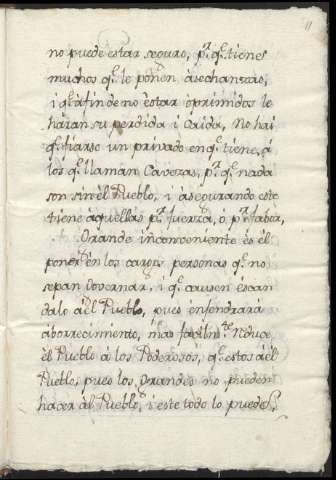 11
no puede estar seguro, p.r q.e tienes
muchos q.e le ponen àsechanzas,
i q.e àfin de no èstar oprimidos le
haràn su perdida i Caida, No hai
q.e fiarse un privado en q.e tiene, à
los q.e llaman Cavezas, p.r q.e nada
son sin èl Pueblo, i àsegurando este
tiene àquellas p.r fuerza, ò p.r favor,
Grande inconveniente ès èl
poner èn los cargos personas q.e no
sepan Governar, i q.e causen èscan
dalo àèl Pueblo, pues enfendrarà
àborrecimiento, mas facilm.te reduce
èl Pueblo à los Poderosos, q.e estos àèl
Pueblo, pues los Grandes no pueden
hacer àl Pueblo, i este todo lo puede,